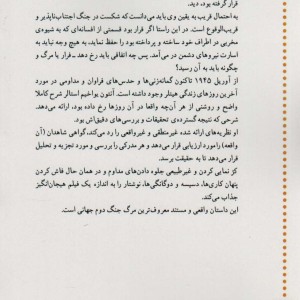 قرار گرفته بود، دید.
به احتمال قریب به یقین وی باید می‌دانست که شکست در جنگ اجتناب‌ناپذیر و
قریب‌الوقوع است. در این راستا اگر قرار بود قسمتی از افسانه‌ای که به شیوه‌ی
مخربی در اطراف خود ساخته و پرداخته بود را حفظ نماید، به هیچ وجه نباید به
اسارت نیروهای دشمن در می‌آمد. پس چه اتفاقی باید رخ می‌داد. ..قرار یا مرگ و
چگونه باید به آن رسید؟
از آوریل ۱۹۴۵ تاکنون گمانه‌زنی‌ها و حدس‌های فراوان و مداومی در مورد
آخرین روزهای زندگی هیتلر وجود داشته است. آنتون یواخیم استالر شرح کاملا
واضح و روشنی از هر آن‌چه واقعا در آن روزها رخ داده بود، ارائه می‌دهد.
شرحی که نتیجه گسترده‌ی تحقیقات و بررسی‌های دقیق است.
او نظریه‌های ارائه شده غیرمنطقی و غیرواقعی را رد می‌کند، گواهی شاهدان (آن
واقعه) را مورد ارزیابی قرار می‌دهد و هر مدرکی را بررسی و مورد تجزیه و تحلیل
قرار می‌دهد تا به حقیقت برسد.
کژ نمایی کردن و غیرطبیعی جلوه دادن‌های مداوم و در همان حال فاش کردن
پنهان کاری‌ها، دسیسه و دوگانگی‌ها، نوشتار را به اندازه‌ یک فیلم هیجان‌انگیز
جذاب می‌کند.
این داستان واقعی و مستند معروف‌ترین مرگ جنگ دوم جهانی است.